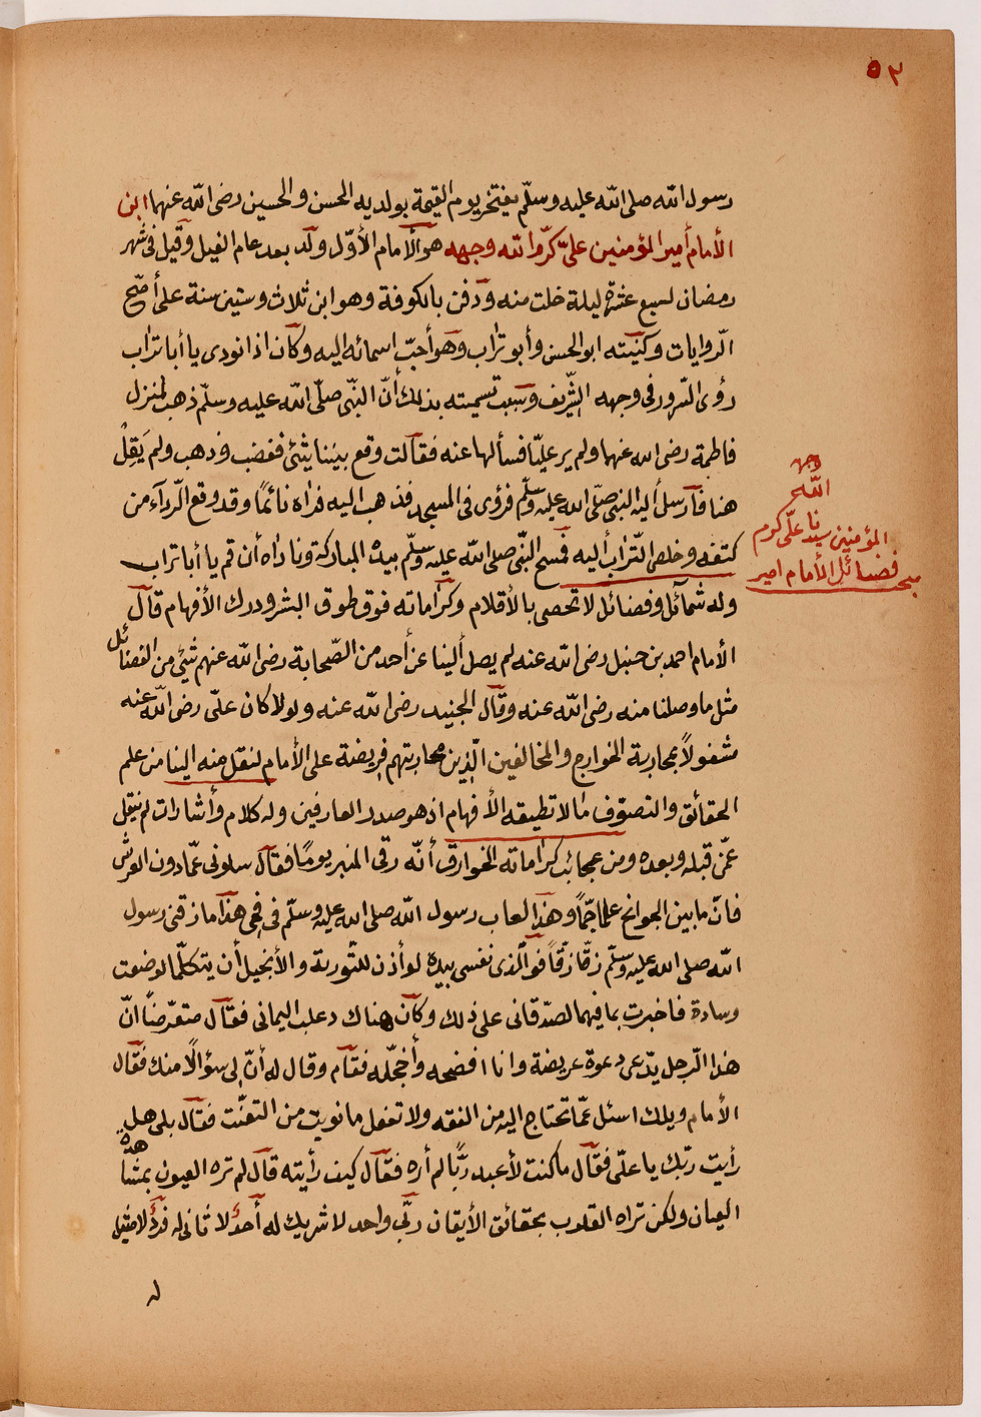 ٥٢
رسول الله صلى الله عليه وسلّم يفتخر يوم القيمة بولديه الحسن والحسين رضى الله عنهما ابن
الأمام أمير المؤمنين علىّ كرّم الله وجهه هو الأمام الأوّل ولد بعد عام الفيل وقيل فى شهر
رمضان لسبع عشرة ليلة خلت منه ودفن بالكوفة وهو ابن ثلاث وستين سنة على أصّح
الّروايات وكنيته ابو الحسن وأبو تراب وهو أحبّ اسمائه اليه وكان اذا نودى يا أبا تراب
رؤى السّرور فى وجهه الشّريف وسبب تسميته بذلك أنّ النبّى صلّى الله عليه وسلّم ذهب لمنزل
فاطمة رضى الله عنها ولم ير عليّا فسألها عنه فقالت وقع بيننا شئى فغضب وذهب ولم يَقِلْ
هنا فأرسل أليه النبى صلّى الله عليه وسلّم فرؤى فى المسجد فذهب اليه فراه نائمًا وقد وقع الّردآء من
كتفه وخلص الّتراب أليه فمسح النبّى صلى الله عليه وسلّم بيده المباركة وناداه أن قم يا أبا تراب
وله شمائل وفضائل لا تحصى بالأقلام وكراماته فوق طوق البشر ودرك الأفهام قال
الأمام احمد بن حنبل رضى الله عنه لم يصل ألينا عن أحد من الصّحابة رضى الله عنهم شئى من الفضائل
مثل ما وصلنا منه رضى الله عنه وقال الجنيد رضى الله عنه ولولا كان علّى رضى الله عنه
مشغولاً بمحاربة الخوارج والمخالفين الّذين محاربتهم فريضة على الأمام لنقل منه الينا من علم
الحقائق والتصوّف ما لا تطيقه الأفهام اذ هو صدر العارفين وله كلام وأشارات لم ينقل
عمّن قبله وبعده ومن عجائب كراماته الخوارق أنّه رقى المنبر يومًا فقال سلونى عمّا دون العرش
فانّ ما بين الجوانح علما جمّاً وهذا لعاب رسول الله صلى الله عليه وسلّم فى فمى هذا ما زقنى رسول
الله صلى الله عليه وسلّم زقّا زقّاً فو الّذى نفسى بيده لو أذن للتّورية والأنجيل أن يتكلّما لوضعت
وسادة فاخبرت بما فيهما لصدّقانى على ذلك وكان هناك دعلب اليمانى فقال متعرّضاً انّ
هذا الّرجل يدّعى دعوة عريضة وانا افضحه وأخجّله فقام وقال له أنّ لى سؤالًا منك فقال
الأمام ويلك اسئل عمّا تحتاج اليه من الفقه ولا تفعل ما نويت من التعنّت فقال بلى هل
رأيت ربّك يا علّى فقال ما كنت لأعبد ربًّا لم أره فقال كيف رأيته قال لم تره العيون بمشاهدة
العيان ولكن تراه القلوب بحقائق الأيقان ربّى واحد لا شريك له أحدٌ لا ثانى له فردٌ لا مثيل
له
مبحث فضائل الأمام امير
المؤمنين سيدنا علّى كرم
الله
وجهه